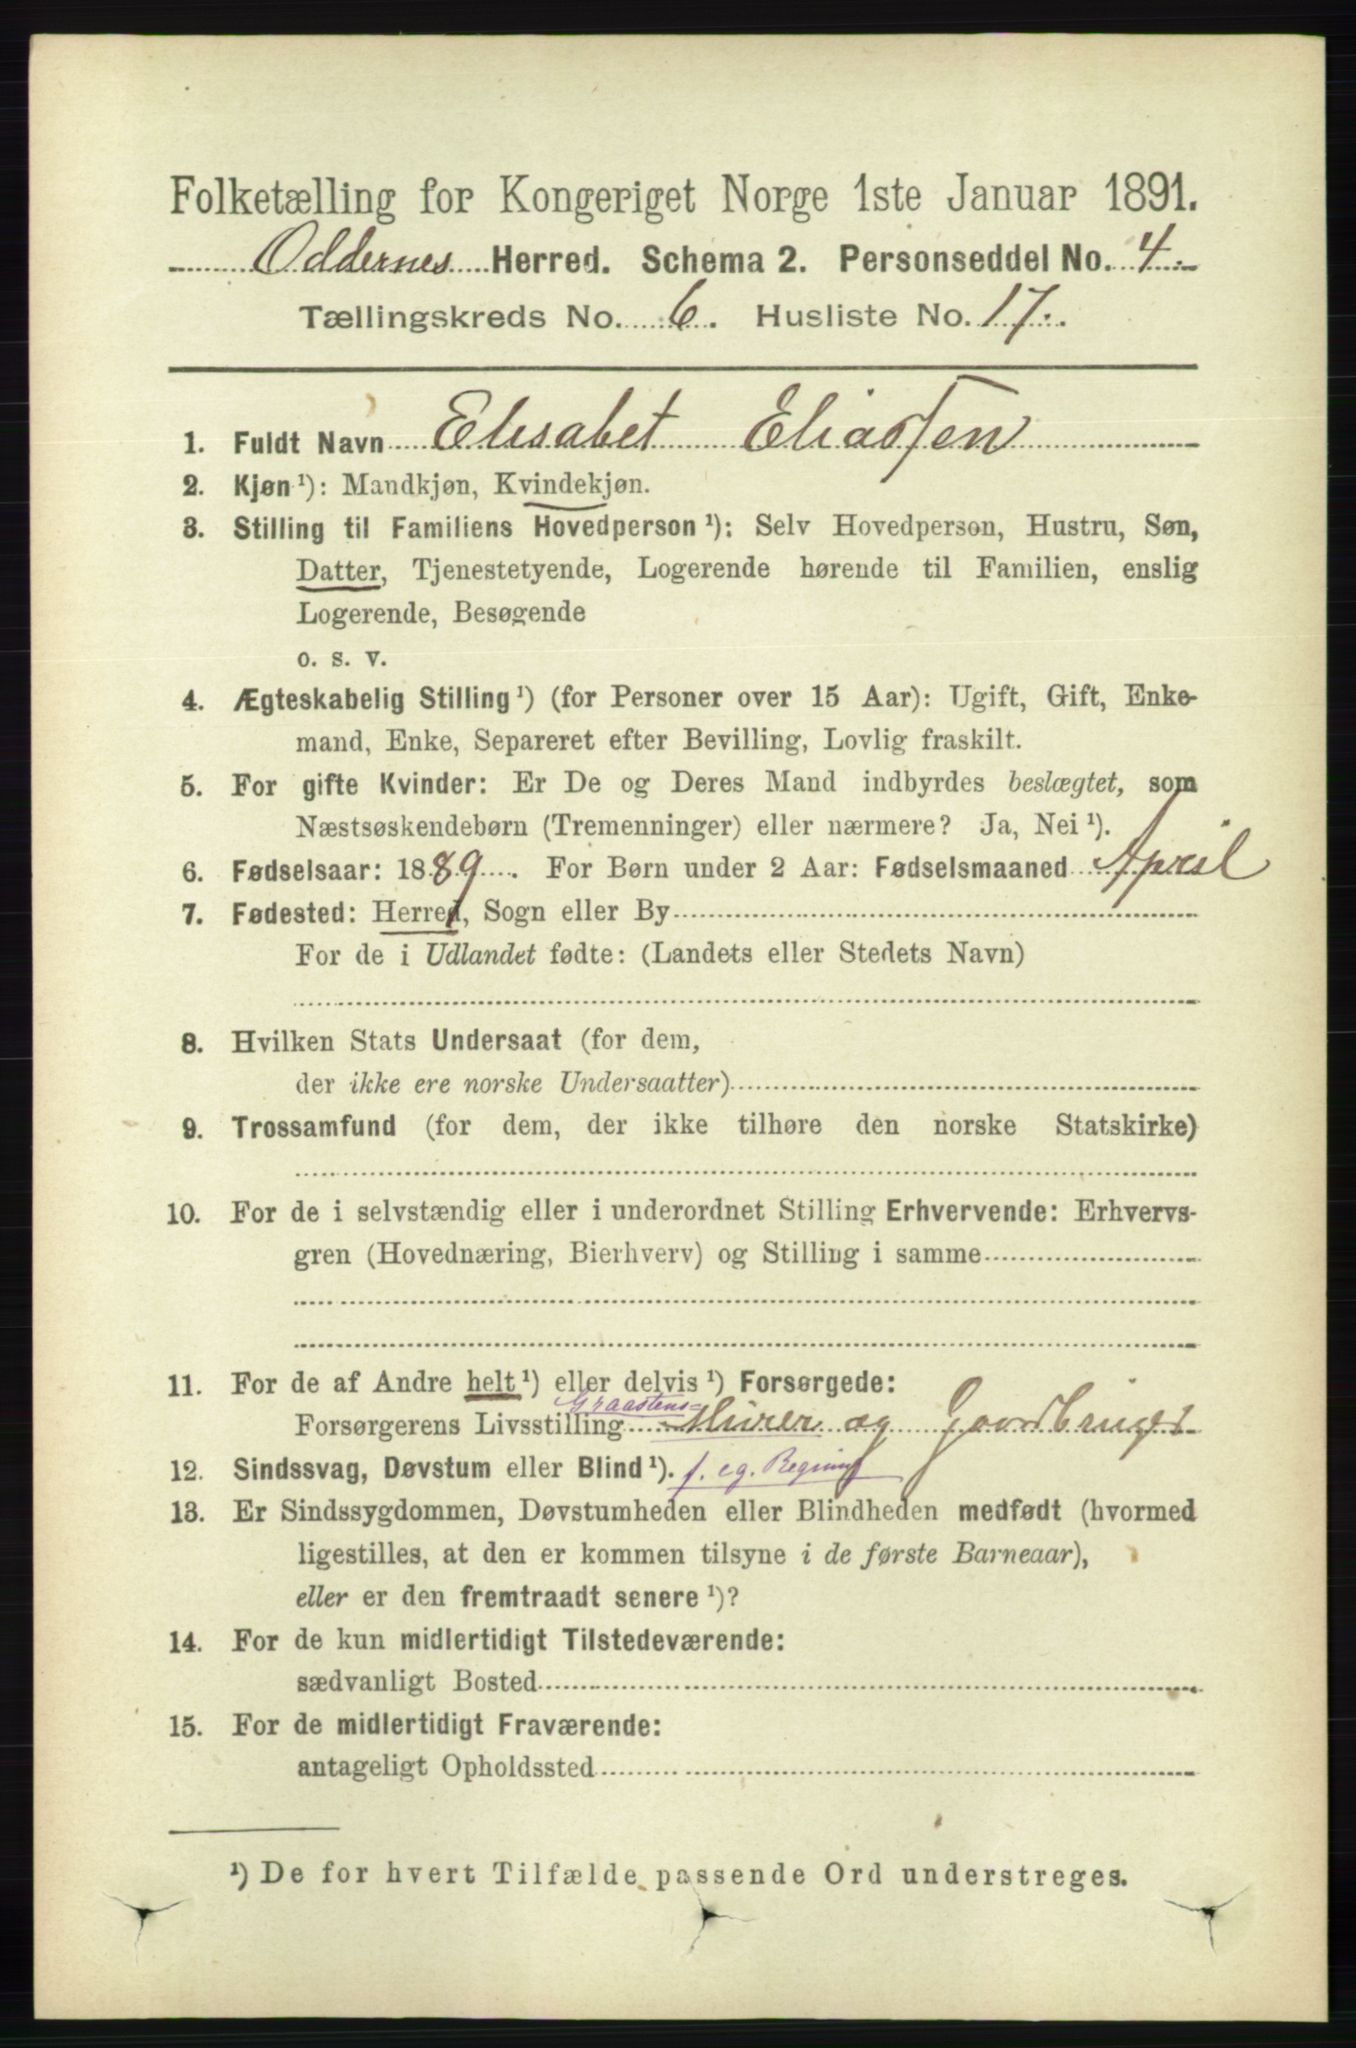 Folketælling for Kongeriget Norge 1ste Januar 1891.
Oddernes Herred. Schema 2. Personseddel No. 4.
Tællingskreds No. 6. Husliste No. 17.
1. Fuldt Navn Elisabet Eliassen
2. Kjøn¹): Mandkjøn, Kvindekjøn.
3. Stilling til Familiens Hovedperson¹): Selv Hovedperson, Hustru, Søn,
Datter, Tjenestetyende, Logerende hørende til Familien, enslig
Logerende, Besøgende
o. s. v.
4. Ægteskabelig Stilling¹) (for Personer over 15 Aar): Ugift, Gift, Enke-
mand, Enke, Separeret efter Bevilling, Lovlig fraskilt.
5. For gifte Kvinder: Er De og Deres Mand indbyrdes beslægtet, som
Næstsøskendebørn (Tremenninger) eller nærmere? Ja, Nei¹).
6. Fødselsaar: 1889. For Børn under 2 Aar: Fødselsmaaned April
7. Fødested: Herred, Sogn eller By
For de i Udlandet fødte: (Landets eller Stedets Navn)
8. Hvilken Stats Undersaat (for dem,
der ikke ere norske Undersaatter)
9. Trossamfund (for dem, der ikke tilhøre den norske Statskirke)
10. For de i selvstændig eller i underordnet Stilling Erhvervende: Erhvervs-
gren (Hovednæring, Bierhverv) og Stilling i samme
11. For de af Andre helt¹) eller delvis¹) Forsørgede:
Graastens=
Forsørgerens Livsstilling Murer og Gaardbruger
12. Sindssvag, Døvstum eller Blind¹). f. eg. Regning
13. Er Sindssygdommen, Døvstumheden eller Blindheden medfødt (hvormed
ligestilles, at den er kommen tilsyne i de første Barneaar),
eller er den fremtraadt senere¹)?
14. For de kun midlertidigt Tilstedeværende:
sædvanligt Bosted
15. For de midlertidigt Fraværende:
antageligt Opholdssted
¹) De for hvert Tilfælde passende Ord understreges.